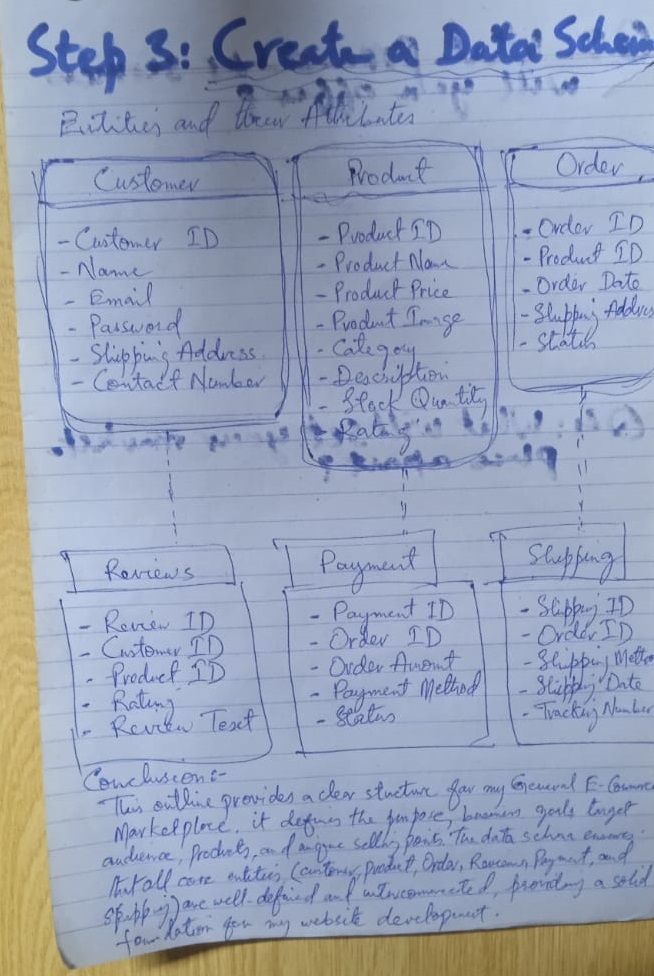 Step 3: Create a Data Schem
Entities and their Attributes
Customer
- Customer ID
- Name
- Email
- Password
- Shipping Address
- Contact Number
Product
- Product ID
- Product Name
- Product Price
- Product Image
- Category
- Description
- Stock Quantity
- Rating
Order
- Order ID
- Product ID
- Order Date
- Shipping Address
- Status
Reviews
- Review ID
- Customer ID
- Product ID
- Rating
- Review Text
Payment
- Payment ID
- Order ID
- Order Amount
- Payment Method
- Status
Shipping
- Shipping ID
- Order ID
- Shipping Metho
- Shipping Date
- Tracking Number
Conclusion:-
This outline provides a clear structure for my General E-Commerc
Marketplace. it defines the purpose, business goals target
audience, Products, and unique selling points. The data schema ensures
that all core entities (customer, Product, Order, Reviews, Payment, and
Shipping) are well-defined and interconnected, providing a solid
foundation for my website development.